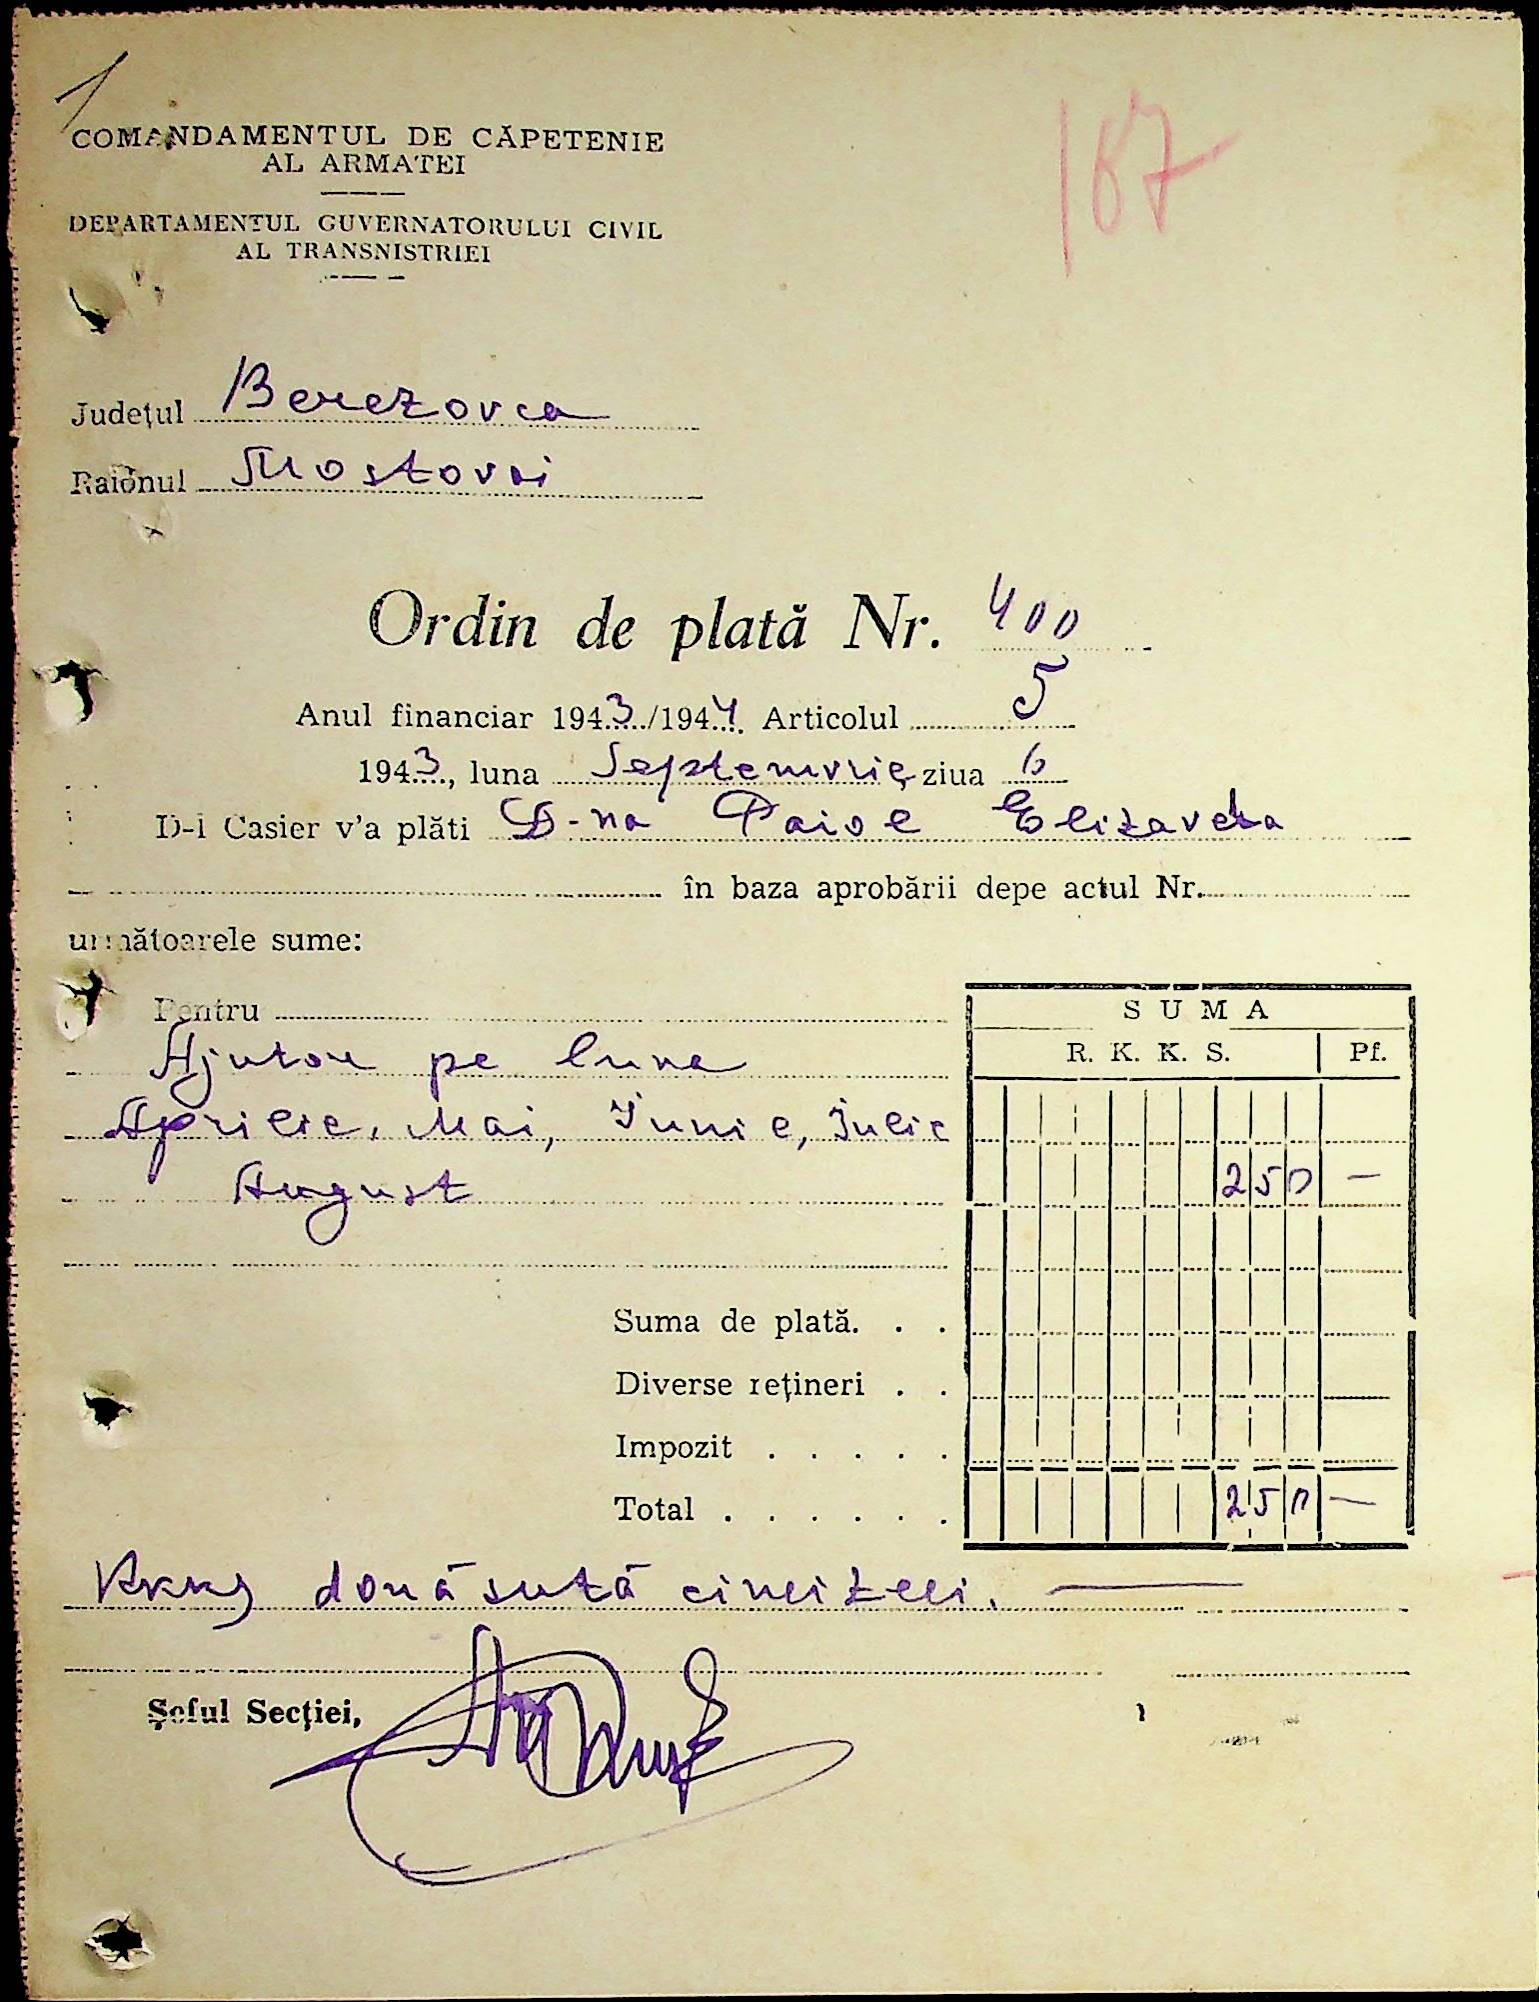 1
167
COMANDAMENTUL DE CĂPETENIE
AL ARMATEI
DEPARTAMENTUL GUVERNATORULUI CIVIL
AL TRANSNISTRIEI
Județul Berezovca
Raionul Mostovoi
Ordin de plată Nr. 400
Anul financiar 1943/1944. Articolul 5
1943, luna Septemvrie ziua 6
D-l Casier v'a plăti D-na Paiol Elizaveta
în baza aprobării depe actul Nr.
următoarele sume:
Pentru
Ajutor pe luna
Aprilie, Mai, Iunie, Iulie
August
S U M A
R. K. K. S. Pf.
250 —
Suma de plată. . .
Diverse rețineri . .
Impozit . . . . .
Total . . . . . . 250 —
Rkks două sută cincizeci. —
Șeful Secției,